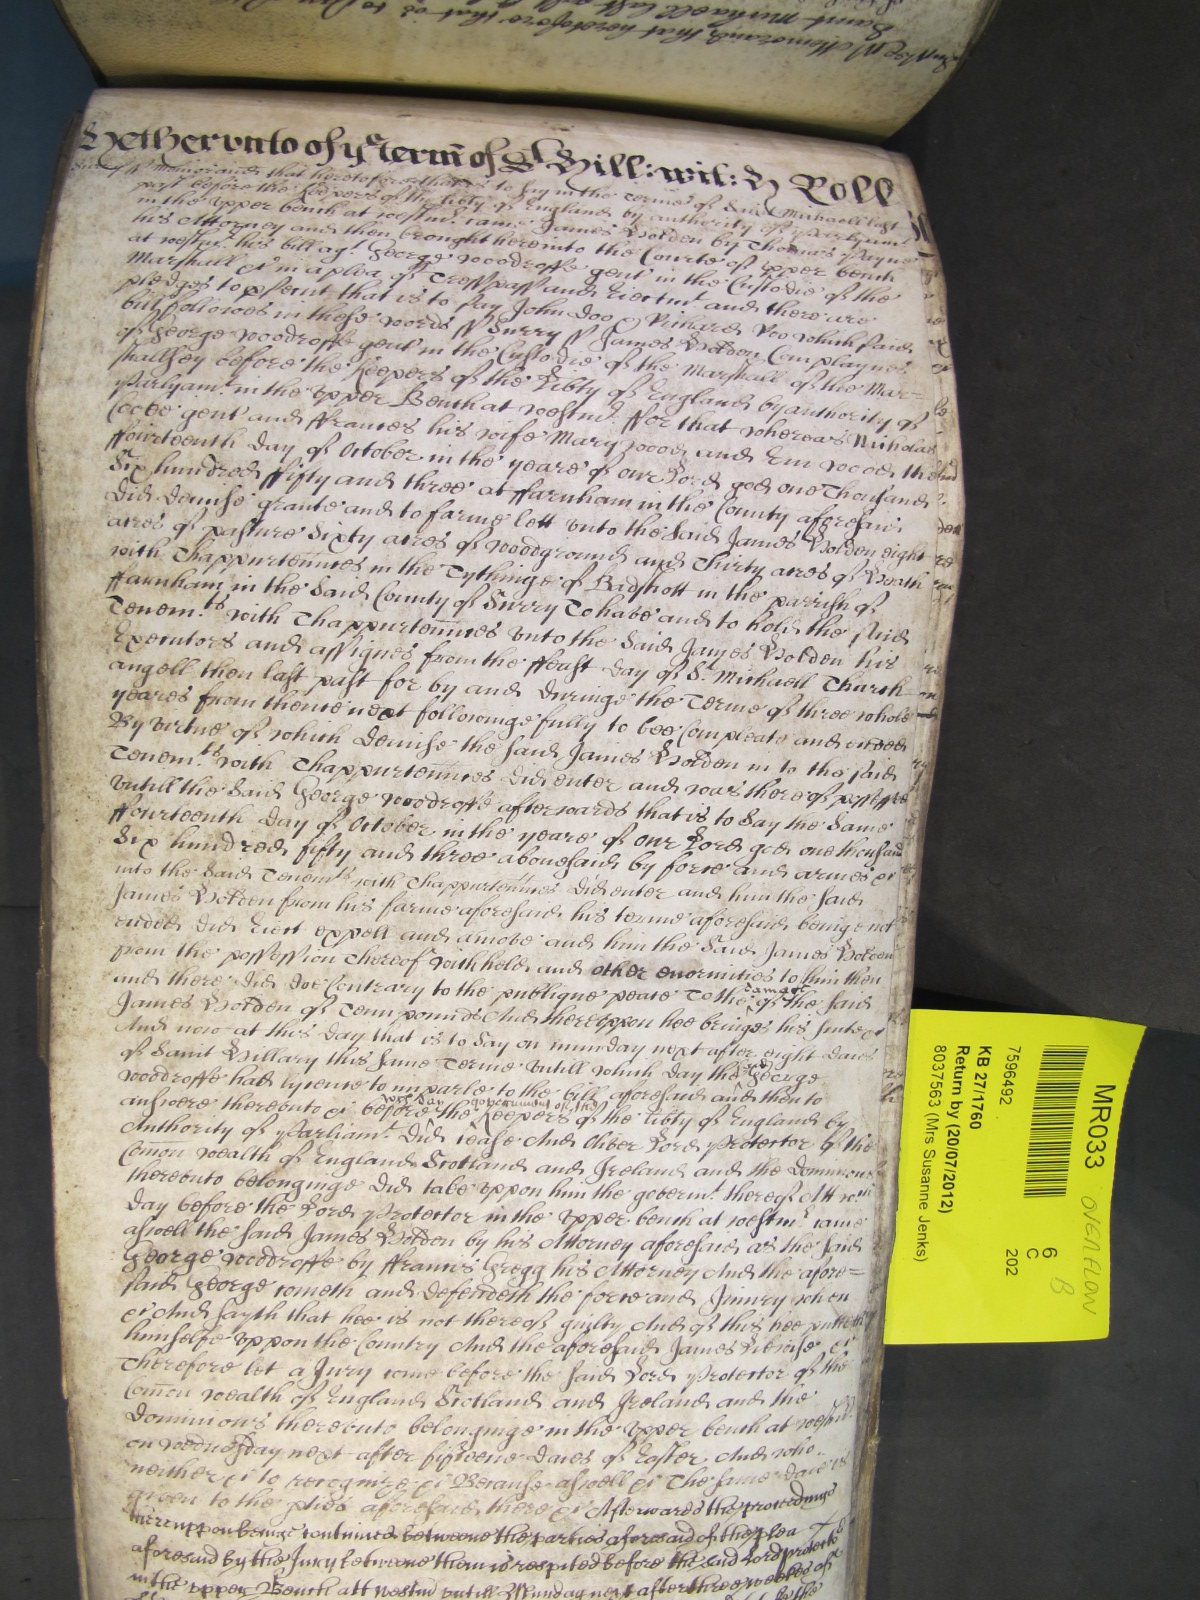 Saint Michaell last
Memorand that heretofore that is to
Yet hervnto of ye Term of St Hill: wit: Roll
Surr ss Memorand that heretofore that is to say in the Terme of Saint Michaell last
past before the Keepers of the liberty of England by authority of Parlyamt
in the vpper bench at westmr came James Bolden by Thomas Payne
his Attorney and then brought here into the Courte of vpper bench
at westmr his bill agt George woodroffe gent in the Custodie of the
Marshall &c in a plea of Trespasse and Eiectmt and there are
pledges to psecut that is to say John Doo & Richard Roo which said
bill followes in these words ss Surry ss James Bolden Complaynes
of George woodroffe gent in the Custodie of the Marshall of the Mar=
shallsey before the Keepers of the Libty of England by authority of
Parlyamt in the vpper Bench at westmr ffor that whereas Nicholas
gent and ffrances his wife Mary wood and wood the
ffourteenth day of October in the yeare of our Lord god one Thousand
Six hundred ffifty and three at ffarnham in the County aforesaid
did demise grante and to farme lett vnto the said James Bolden eight
acres of pasture Sixty acres of woodground and Thirty acres of
with Thappurtennces in the Tythinge of Badshott in the parrish of
ffarnham in the said County of Surry To have and to hold the said
Tenemts with Thappurtennces vnto the said James Bolden his
Executors and assignes from the ffeast day of St Michaell Tharch
angell then last past for by and duringe the Terme of three whole
yeares from thence next followinge fully to bee Compleate and ended
By virtue of which demise the said James Bolden in to the said
Tenemts with Thappurtennces did enter and was thereof possessed
vntill the said George woodroffe afterwards that is to say the same
ffourteenth day of October in the yeare of our Lord god one thousand
Six hundred fifty and three abouesaid by force and armes &c
into the said Tenemts with Thappurtennces did enter and him the said
James Bolden from his farme aforesaid his terme aforesaid beinge not
ended did Eiect expell and amove and him the said James Bolden
from the possession thereof withheld and other enormities to him then
and there did doe Contrary to the publique peace To the damage of the said
James Bolden of Tenn pounds And therevppon hee bringes his suite &c
And now at this day that is to say on munday next after eight daies
of Saint Hillary this same Terme vntill which day the sd George
woodroffe had lycence to imparle to the bill aforesaid and then to
answere therevnto &c before wch day government of the Keepers of the libty of England by
Authority of Parliamt did cease And Oliver Lord Protector of the
Comon wealth of England Scotland and Ireland and the Dominions
therevnto belonginge did take vppon him the govermt thereof Att wch
day before the Lord Protector in the vpper bench at westmr came
aswell the said James Bolden by his Attorney aforesaid as the said
George woodroffe by ffrancis Gregg his Attorney And the afore=
said George cometh and defendeth the force and Iniury when
&c And sayth that hee is not thereof guilty And of this hee putteth
himselfe vppon the Country And the aforesaid James likewise &c
Therefore let a Jury come before the said Lord Protector of the
Comon wealth of England Scotland and Ireland and the
Dominions therevnto belonginge in the vpper bench at westmr
on wednesday next after fifteene daies of Easter And who
neither &c to recognize &c Because aswell &c The same daie is
given to the pties aforesaid there &c Afterwards the proceedings
therevppon beinge continued betweene the parties aforesaid of the plea
aforesaid by the Jury betweene them is respited before the said Lord protector
in the vpper Bench att westmr vntill Munday next after three weekes of
MR033 OVERFLOW
6
C
202
B
7596492
KB 27/1760
Return by (20/07/2012)
8037563 (Mrs Susanne Jenks)